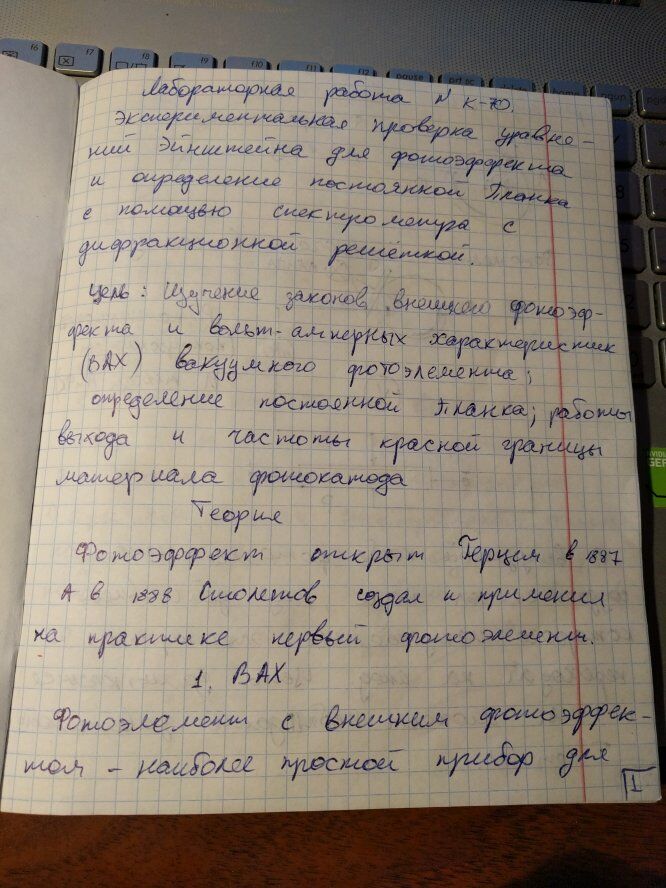 f6 f7 f8 f9 f10 f11 f12 pause prt sc delete home pgup
Лабораторная работа N К-70.
Экспериментальная проверка уравне-
ний Эйнштейна для фотоэффекта
и определение постоянной Планка
с помощью спектрометра с
дифракционной решёткой.
Цель: Изучение законов внешнего фотоэф-
фекта и вольт-амперных характеристик
(ВАХ) вакуумного фотоэлемента;
определение постоянной Планка; работы
выхода и частоты красной границы
материала фотокатода
Теория
Фотоэффект открыт Герцем в 1887
А в 1888 Столетов создал и применил
на практике первый фотоэлемент.
1. ВАХ
Фотоэлемент с внешним фотоэффек-
том - наиболее простой прибор для
1